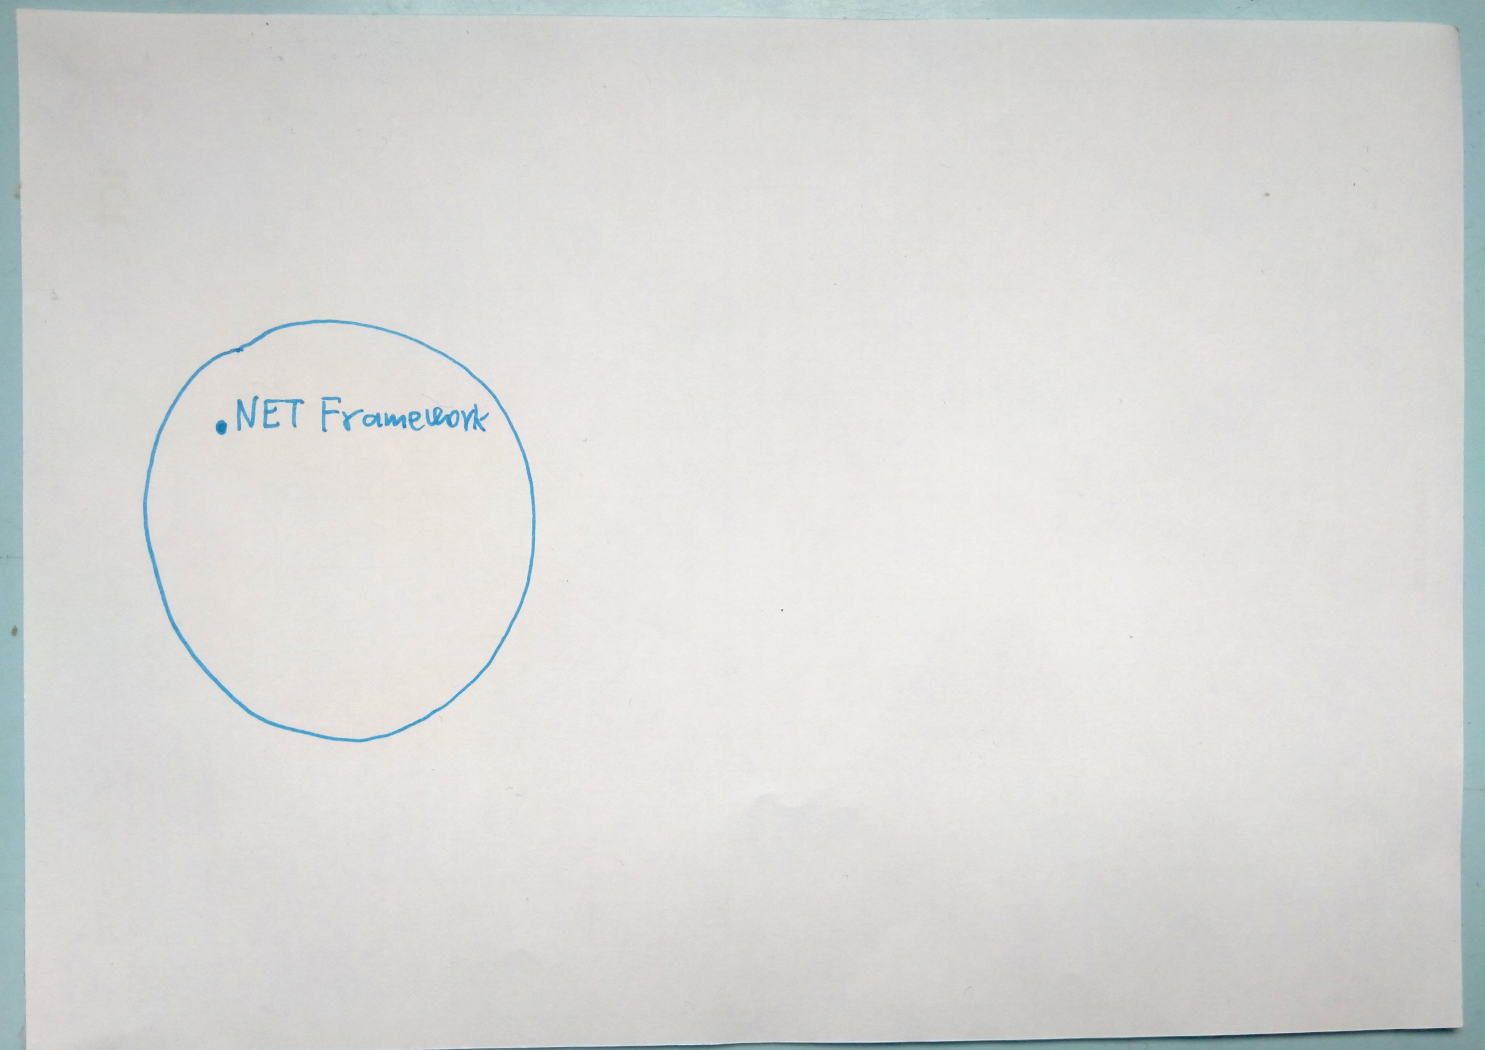 .NET Framework